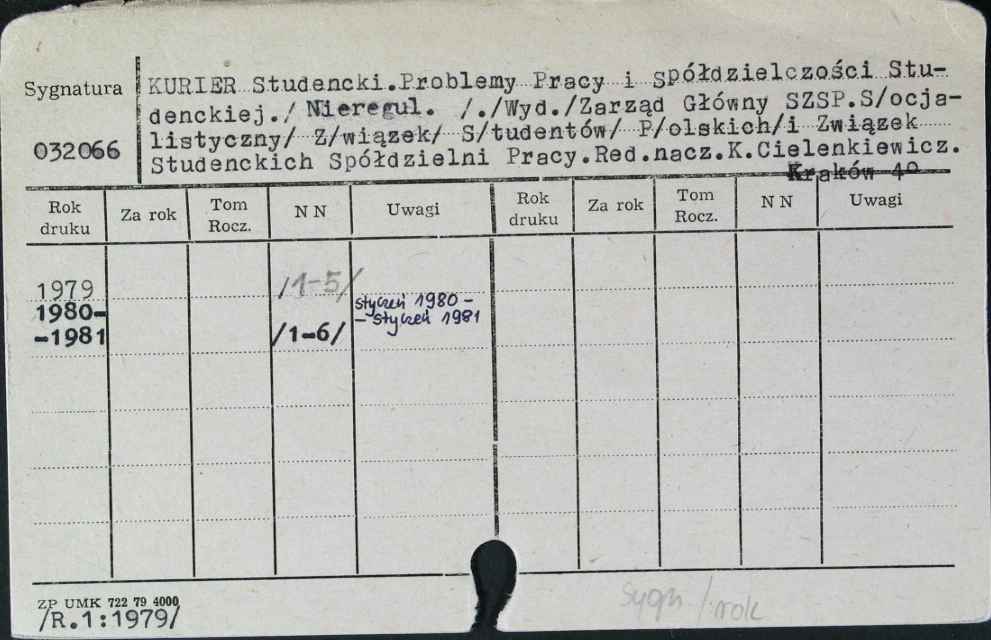 Sygnatura
KURIER Studencki.Problemy Pracy i Spółdzielczości Stu-
denckiej./ Nieregul. /./Wyd./Zarząd Główny SZSP.S/ocja-
032066
listyczny/ Z/wiązek/ S/tudentów/ P/olskich/i Związek
Studenckich Spółdzielni Pracy.Red.nacz.K.Cielenkiewicz.
Kraków 4°
Rok druku Za rok Tom Rocz. N N Uwagi Rok druku Za rok Tom Rocz. N N Uwagi
1979 /1-5/
1980- styczeń 1980 -
-1981 /1-6/ - styczeń 1981
ZP UMK 722 79 4000
/R.1:1979/
Sygn /rok